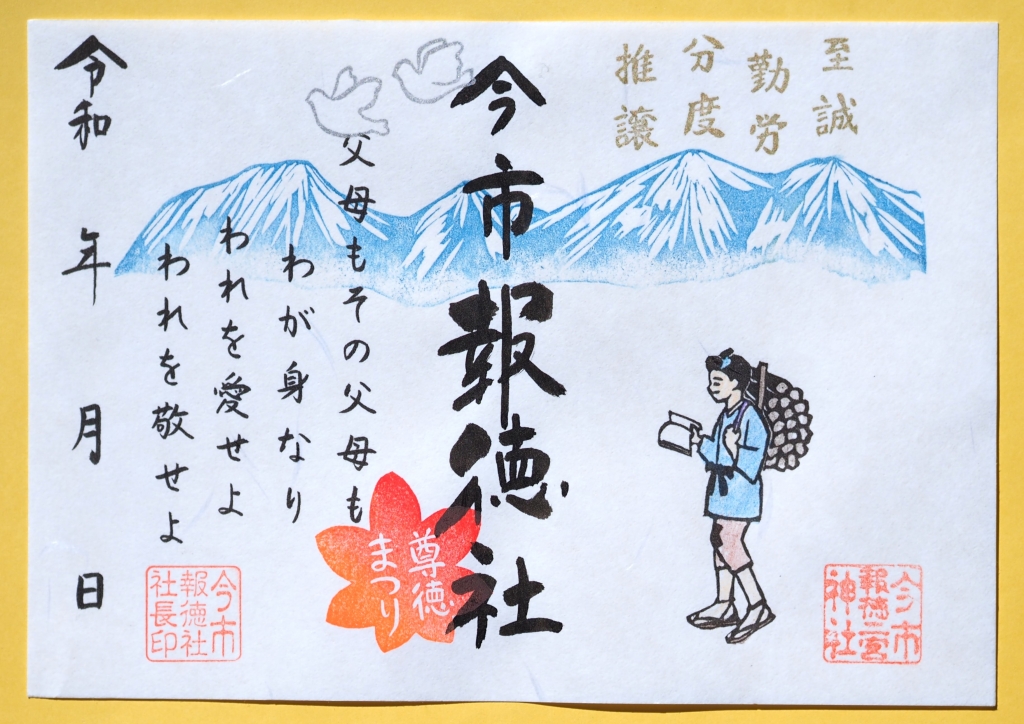 至誠
勤労
分度
推譲
今市報徳社
父母もその父母も
わが身なり
われを愛せよ
われを敬せよ
令和 年 月 日
尊徳
まつり
今市
報徳二宮
神社
今市
報徳社
社長印